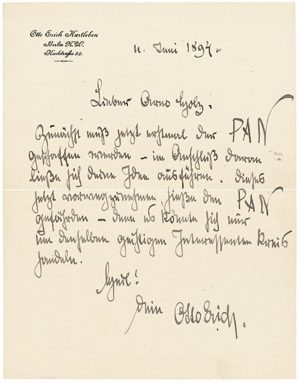 Otto Erich Hartleben
Berlin N.W.
Karlstraße 32.
11. Juni 1894.
Lieber Arno Holz.
Zunächst muß jetzt erstmal der PAN
geschaffen werden – im Anschluß daran
ließe sich deine Idee ausführen. Dieses
jetzt vorwegzunehmen hieße den PAN
gefährden – denn es könnte sich nur
um denselben geistigen Interessenten Kreis
handeln.
Dein
Otto Erich.